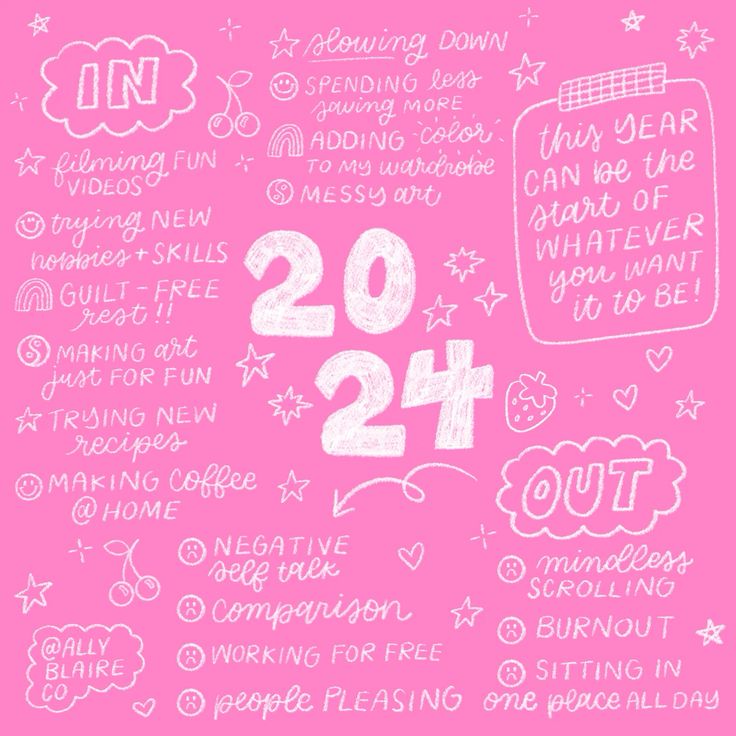 IN
filming FUN
VIDEOS
trying NEW
hobbies + SKILLS
GUILT-FREE
rest!!
MAKING art
just FOR FUN
TRYING NEW
recipes
MAKING coffee
@ HOME
slowing DOWN
SPENDING less
saving MORE
ADDING color
TO MY wardrobe
MESSY art
this YEAR
CAN be the
start OF
WHATEVER
you WANT
it to BE!
20
24
OUT
mindless
SCROLLING
BURNOUT
SITTING IN
one place ALL DAY
NEGATIVE
self talk
comparison
WORKING FOR FREE
people PLEASING
@ALLY
BLAIRE
CO